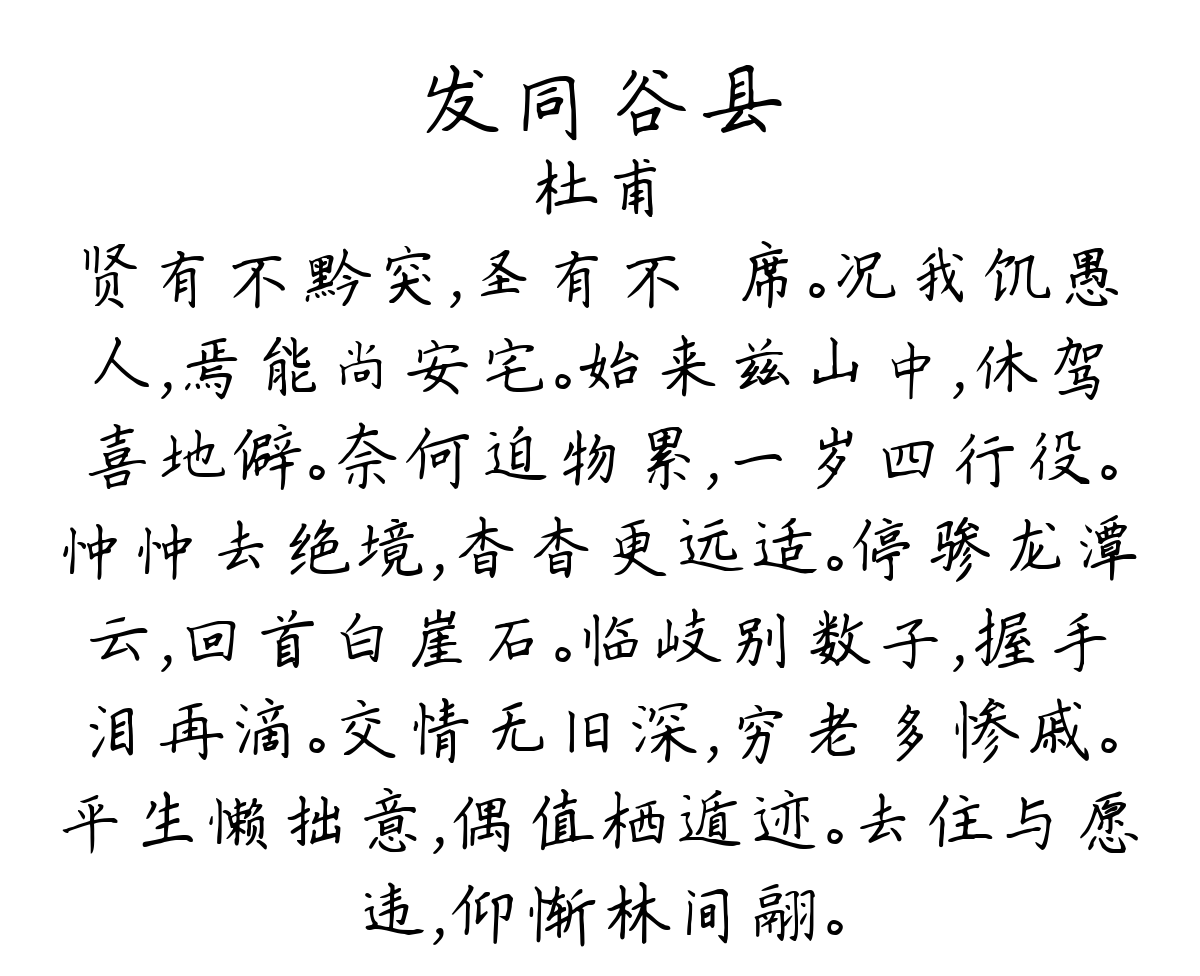 发同谷县
杜甫
贤有不黔突,圣有不 席。况我饥愚
人,焉能尚安宅。始来兹山中,休驾
喜地僻。奈何迫物累,一岁四行役。
忡忡去绝境,杳杳更远适。停骖龙潭
云,回首白崖石。临岐别数子,握手
泪再滴。交情无旧深,穷老多惨戚。
平生懒拙意,偶值栖遁迹。去住与愿
违,仰惭林间翮。